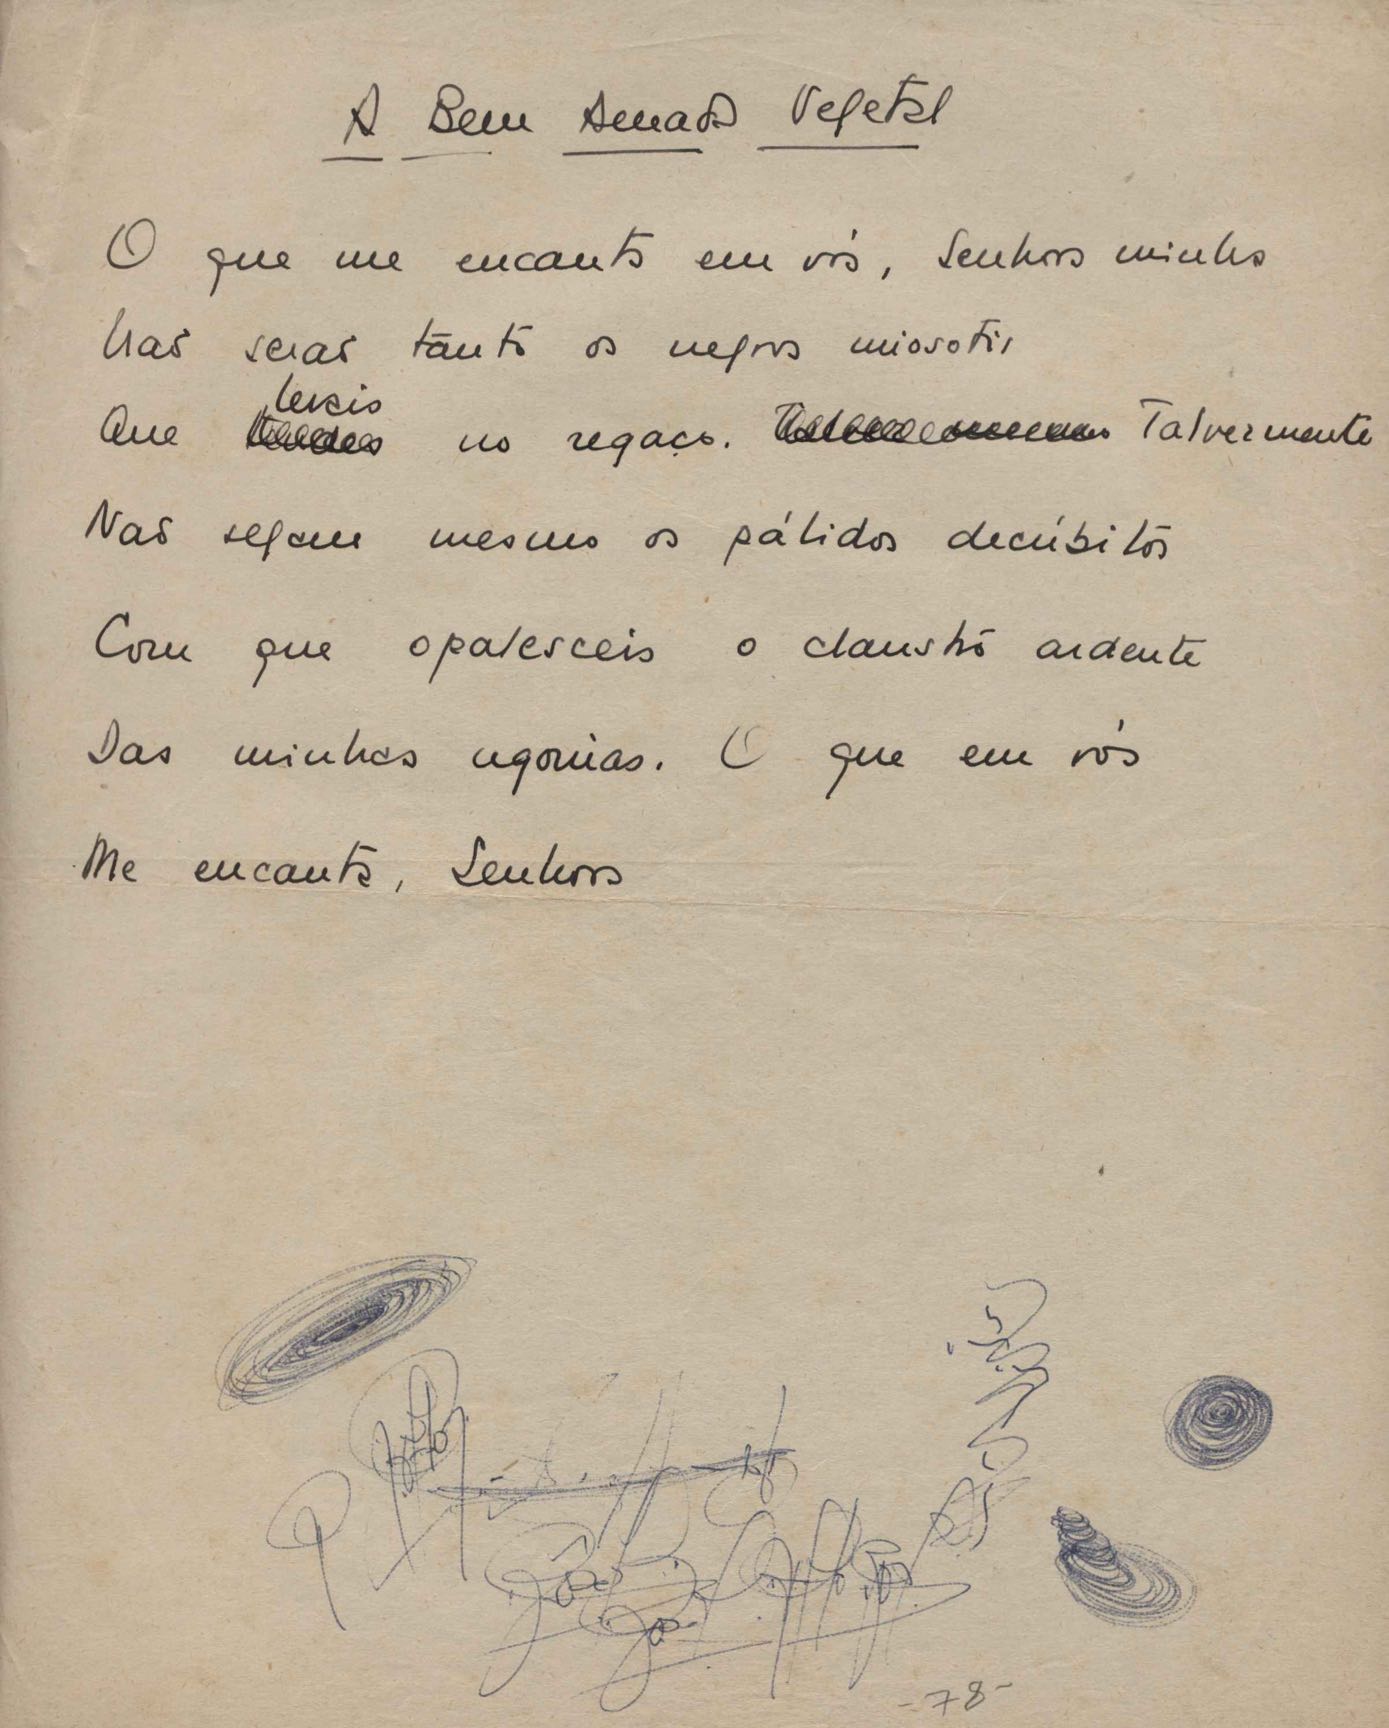 A Bem Amada Vegetal
O que me encanta em vós, Senhora minha
Não serão tanto os negros miosotis
Que levais no regaço. Talvezmente
Não sejam mesmo os pálidos decúbitos
Com que opalesceis o claustro ardente
Das minhas agonias. O que em vós
Me encanta, Senhora
-78-